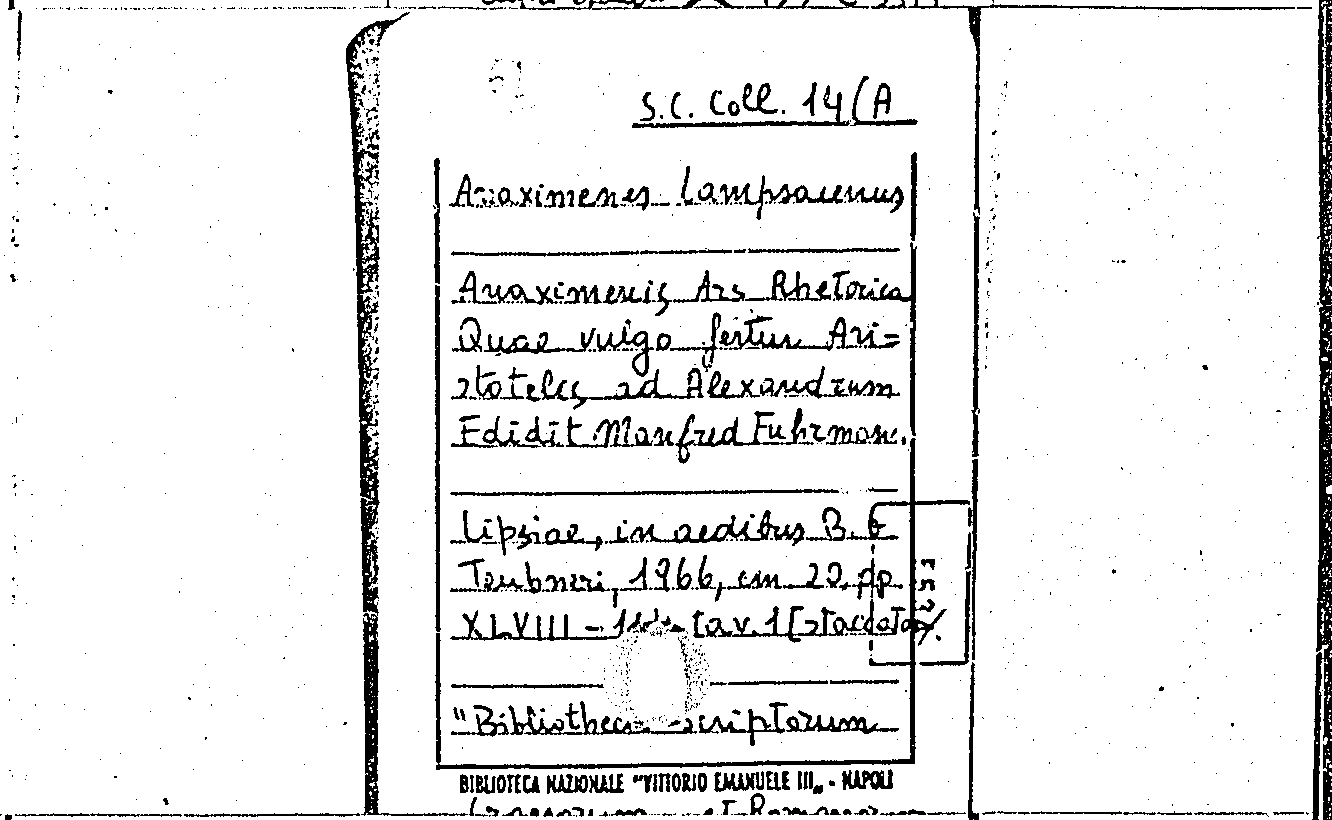 S.C. Coll. 14(A
Anaximenes Lampsacenus
Anaximenis Ars Rhetorica
Quae vulgo fertur Ari=
stotelis ad Alexandrum
Edidit Manfred Fuhrmann.
Lipsiae, in aedibus B. G.
Teubneri, 1966, cm 20, pp.
XLVIII - tav. 1 [staccata].
"Bibliotheca scriptorum
BIBLIOTECA NAZIONALE "VITTORIO EMANUELE III„ - NAPOLI
Graecorum et Romanorum